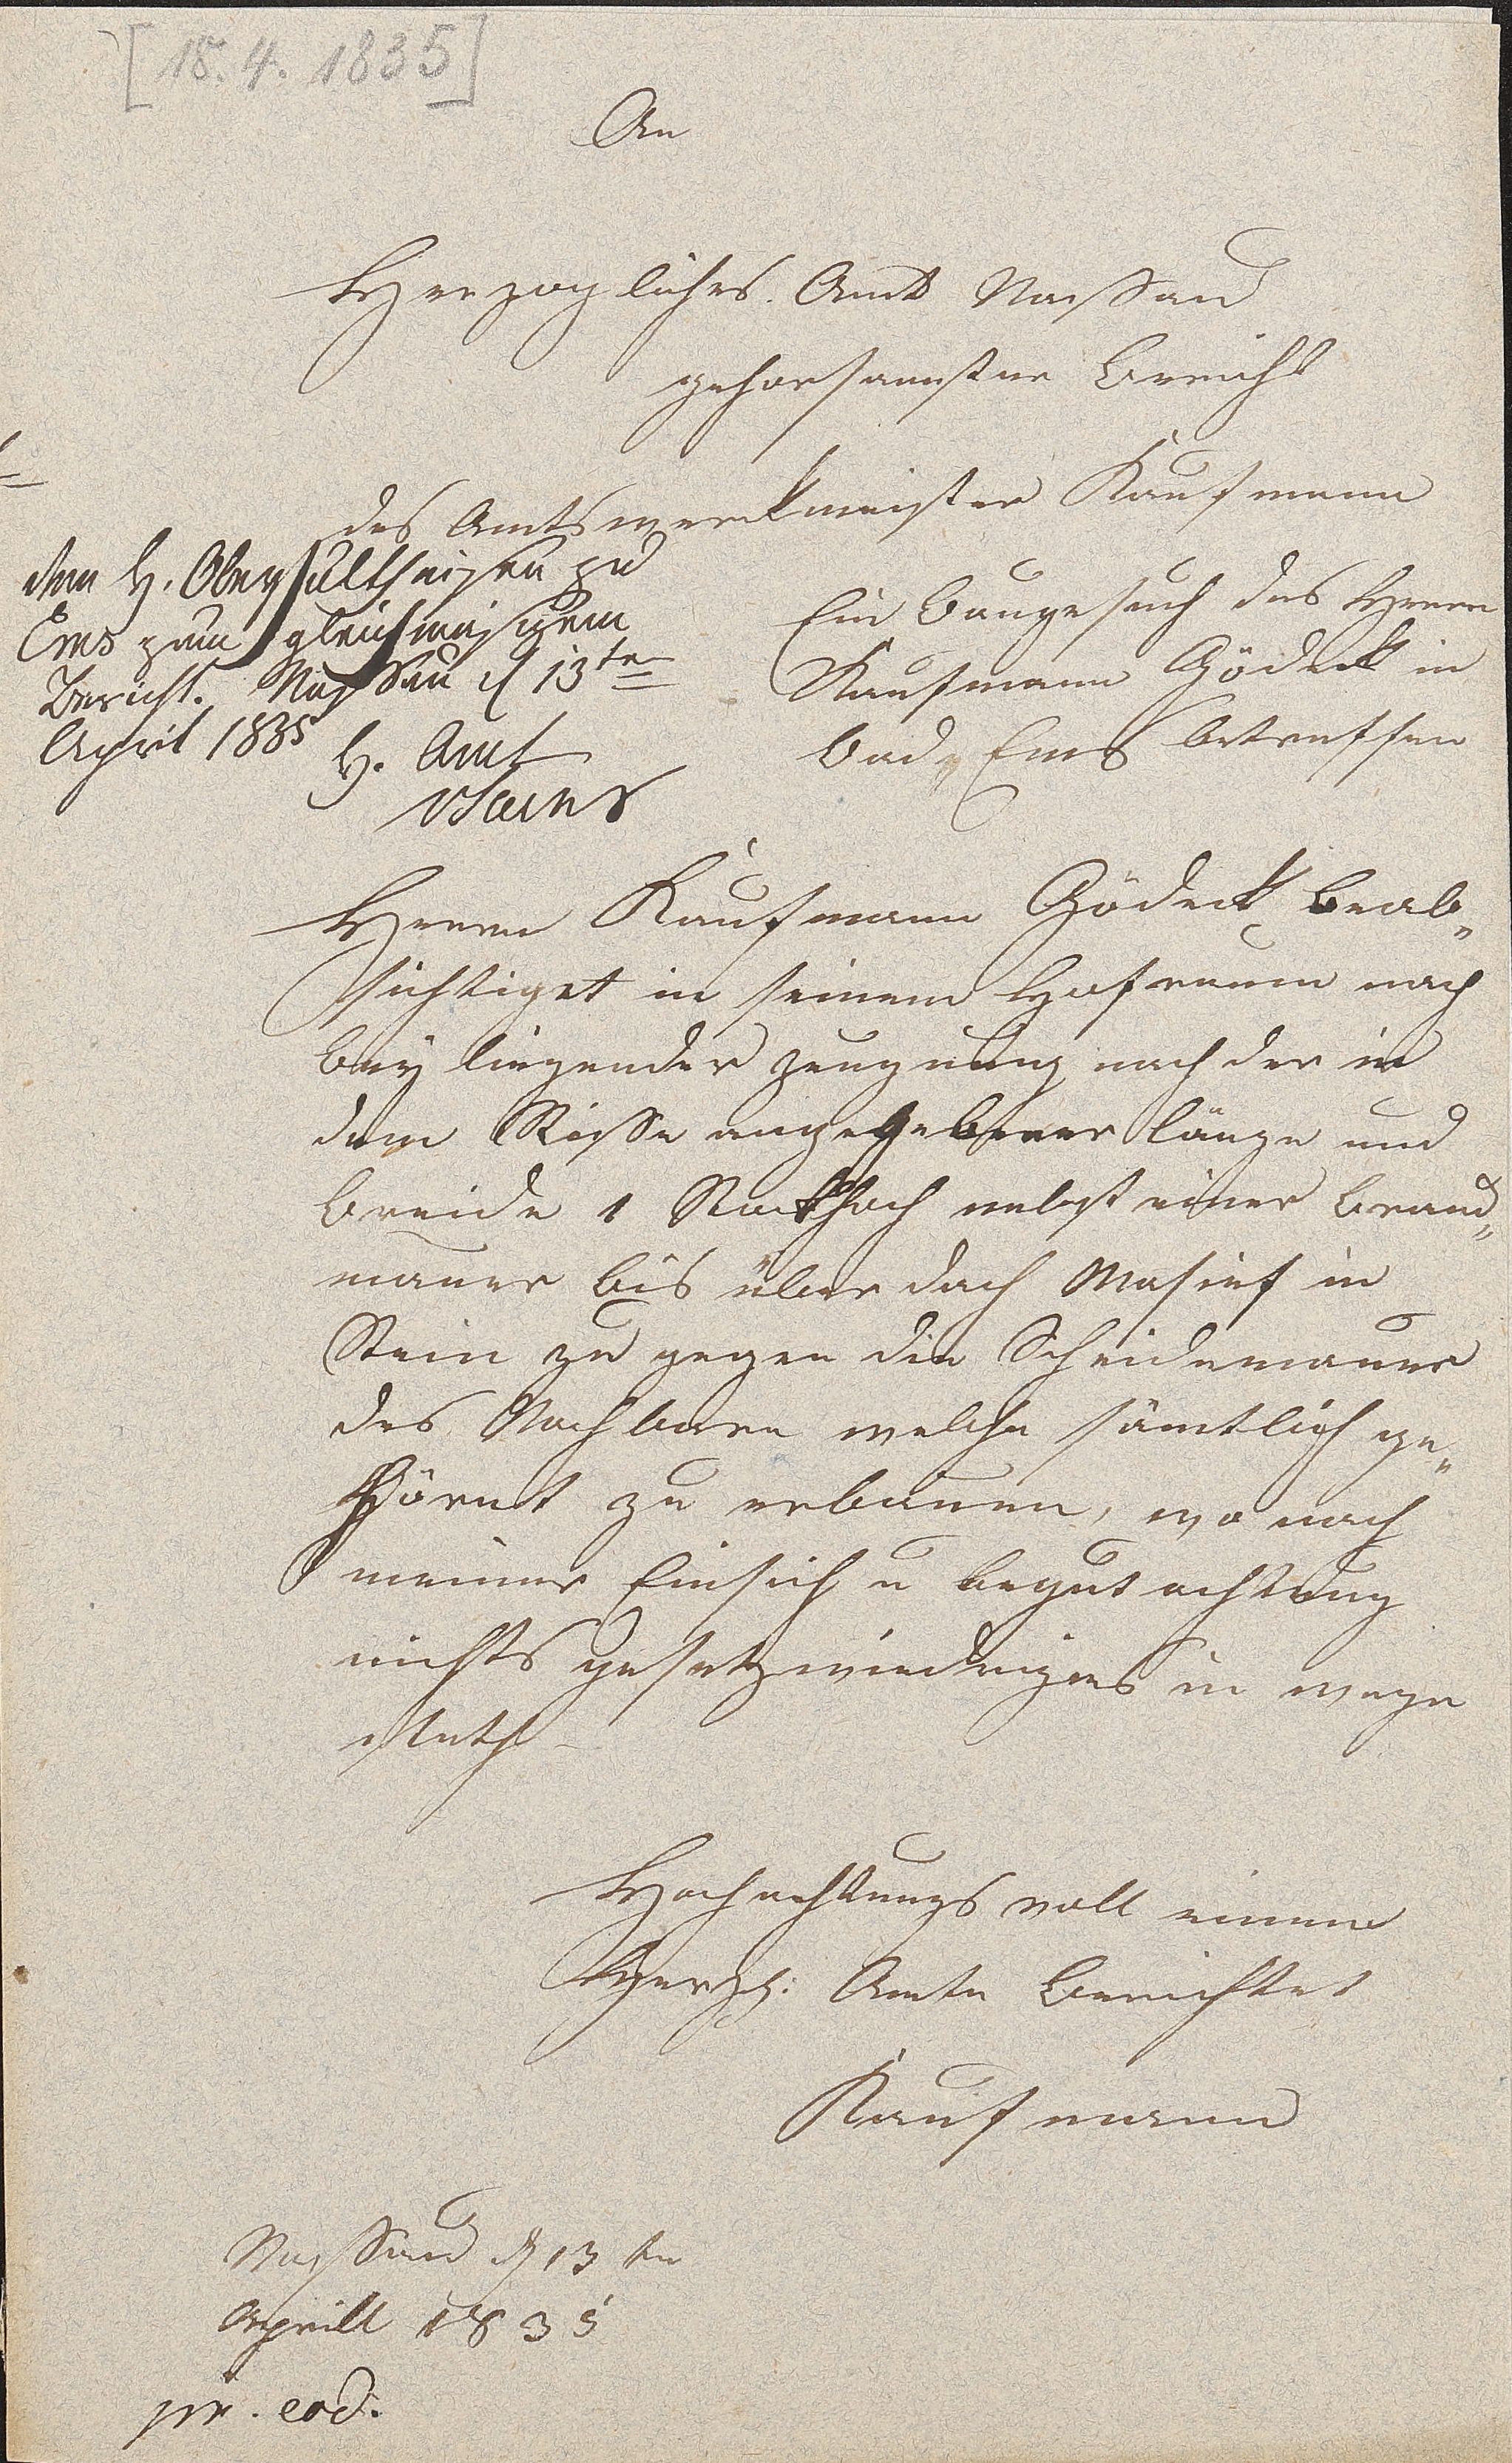 [15.4.1835]
An
Herzogliches Amt Nassau
gehorsamster Bericht
des Amtswerkmeister Kaufmann
dem H. Oberschultheisen zu
Ems zum gleichmäsigem
Bericht. Nassau d 13ten
April 1835
H. Amt
Ein baugesuch des Herrn
Kaufmann Gödeck in
bad Ems betreffen
Herrn Kaufmann Gödeck beab„
sichtiget in seinem Hofraum nach
bey liegender zeugnung nach der in
dem Risse angegebener länge und
breide 1 Stockhoch nebst einer brand„
mauer bis über dach Masief in
Stein zu gegen die Scheidemauer
des Nachbaren welche sämtlich ge„
hörent zu erbauen, wo nach
meiner Einsich u begut achtung
nichts gesetzwiedriges in wege
steth
Hochachtungs voll einem
Herzgl: Amte berichtet
Kaufmann
Nassau d 13 ten
Aprill 1835
pr. eod.